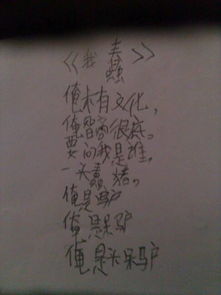 《我蠢》
俺木有文化,
俺智商很底。
要问我是谁。
一头蠢猪。
俺是驴
俺是呆驴
俺是头呆驴